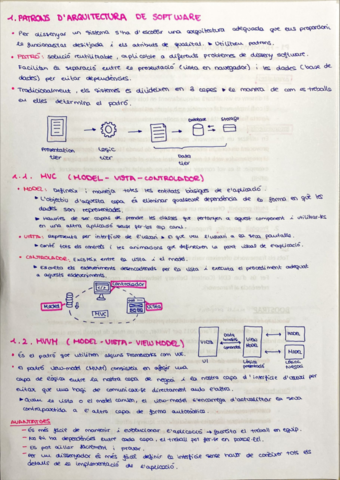 1. PATRONS D'ARQUITECTURA DE SOFTWARE
• Per dissenyar un sistema s'ha d'escollir una arquitectura adequada que ens proporcioni
la funcionalitat desitjada i els atributs de qualitat. Utilitzem patrons.
• PATRÓ: solució reutilitzable, aplicable a diferents problemes de disseny software.
Faciliten la separació entre la presentació (vista en navegador) i les dades (base de
dades) per evitar dependències.
• Tradicionalment, els sistemes es divideixen en 3 capes. La manera de com es treballa
en elles determina el patró.
Database Storage
Presentation Logic Data
tier tier tier
1.1. MVC (MODEL - VISTA - CONTROLADOR)
• MODEL: defineix i maneja totes les entitats bàsiques de l'aplicació.
L'objectiu d'aquesta capa és eliminar qualsevol dependència de la forma en què les
dades son representades.
Hauríem de ser capaç de prendre les classes que pertanyen a aquest component i utilitzar-les
en una altra aplicació sense fer-los cap canvi.
• VISTA: representa per interfície de l'usuari. El que veu l'usuari a la seva pantalla.
Conté tots els controls i les animacions que defineixen la part visual de l'aplicació.
• CONTROLADOR: Existeix entre la vista i el model.
els esdeveniments desencadenats per la vista i executa el procediment adequat
a aquests esdeveniments.
Controlador
Model MVC Vista
1.2. MVVM (MODEL - VISTA - VIEW MODEL)
VISTA Data binding commands VIEW MODEL MODEL
MODEL
UI Lògica presentació Lògica negoci
• És el patró que utilitzen alguns frameworks com Vue.
• El patró view-model (MVVM) consisteix en afegir una
capa de còpia entre la nostra capa de negoci i la nostra capa d'interfície d'usuari per
evitar que una hagi de comunicar-se directament amb l'altra.
Quan la vista o el model canvien, el view-model s'encarrega d'actualitzar la seva
contrapartida a l'altra capa de forma automàtica.
AVANTATGES
- És més fàcil de mantenir i evolucionar l'aplicació → facilita el treball en equip.
- No hi ha dependències entre cada capa, el treball pot fer-se en paral·lel.
- Es pot aïllar fàcilment i provar.
- Per un dissenyador és més fàcil definir la interfície sense haver de conèixer tots els
detalls de la implementació de l'aplicació.